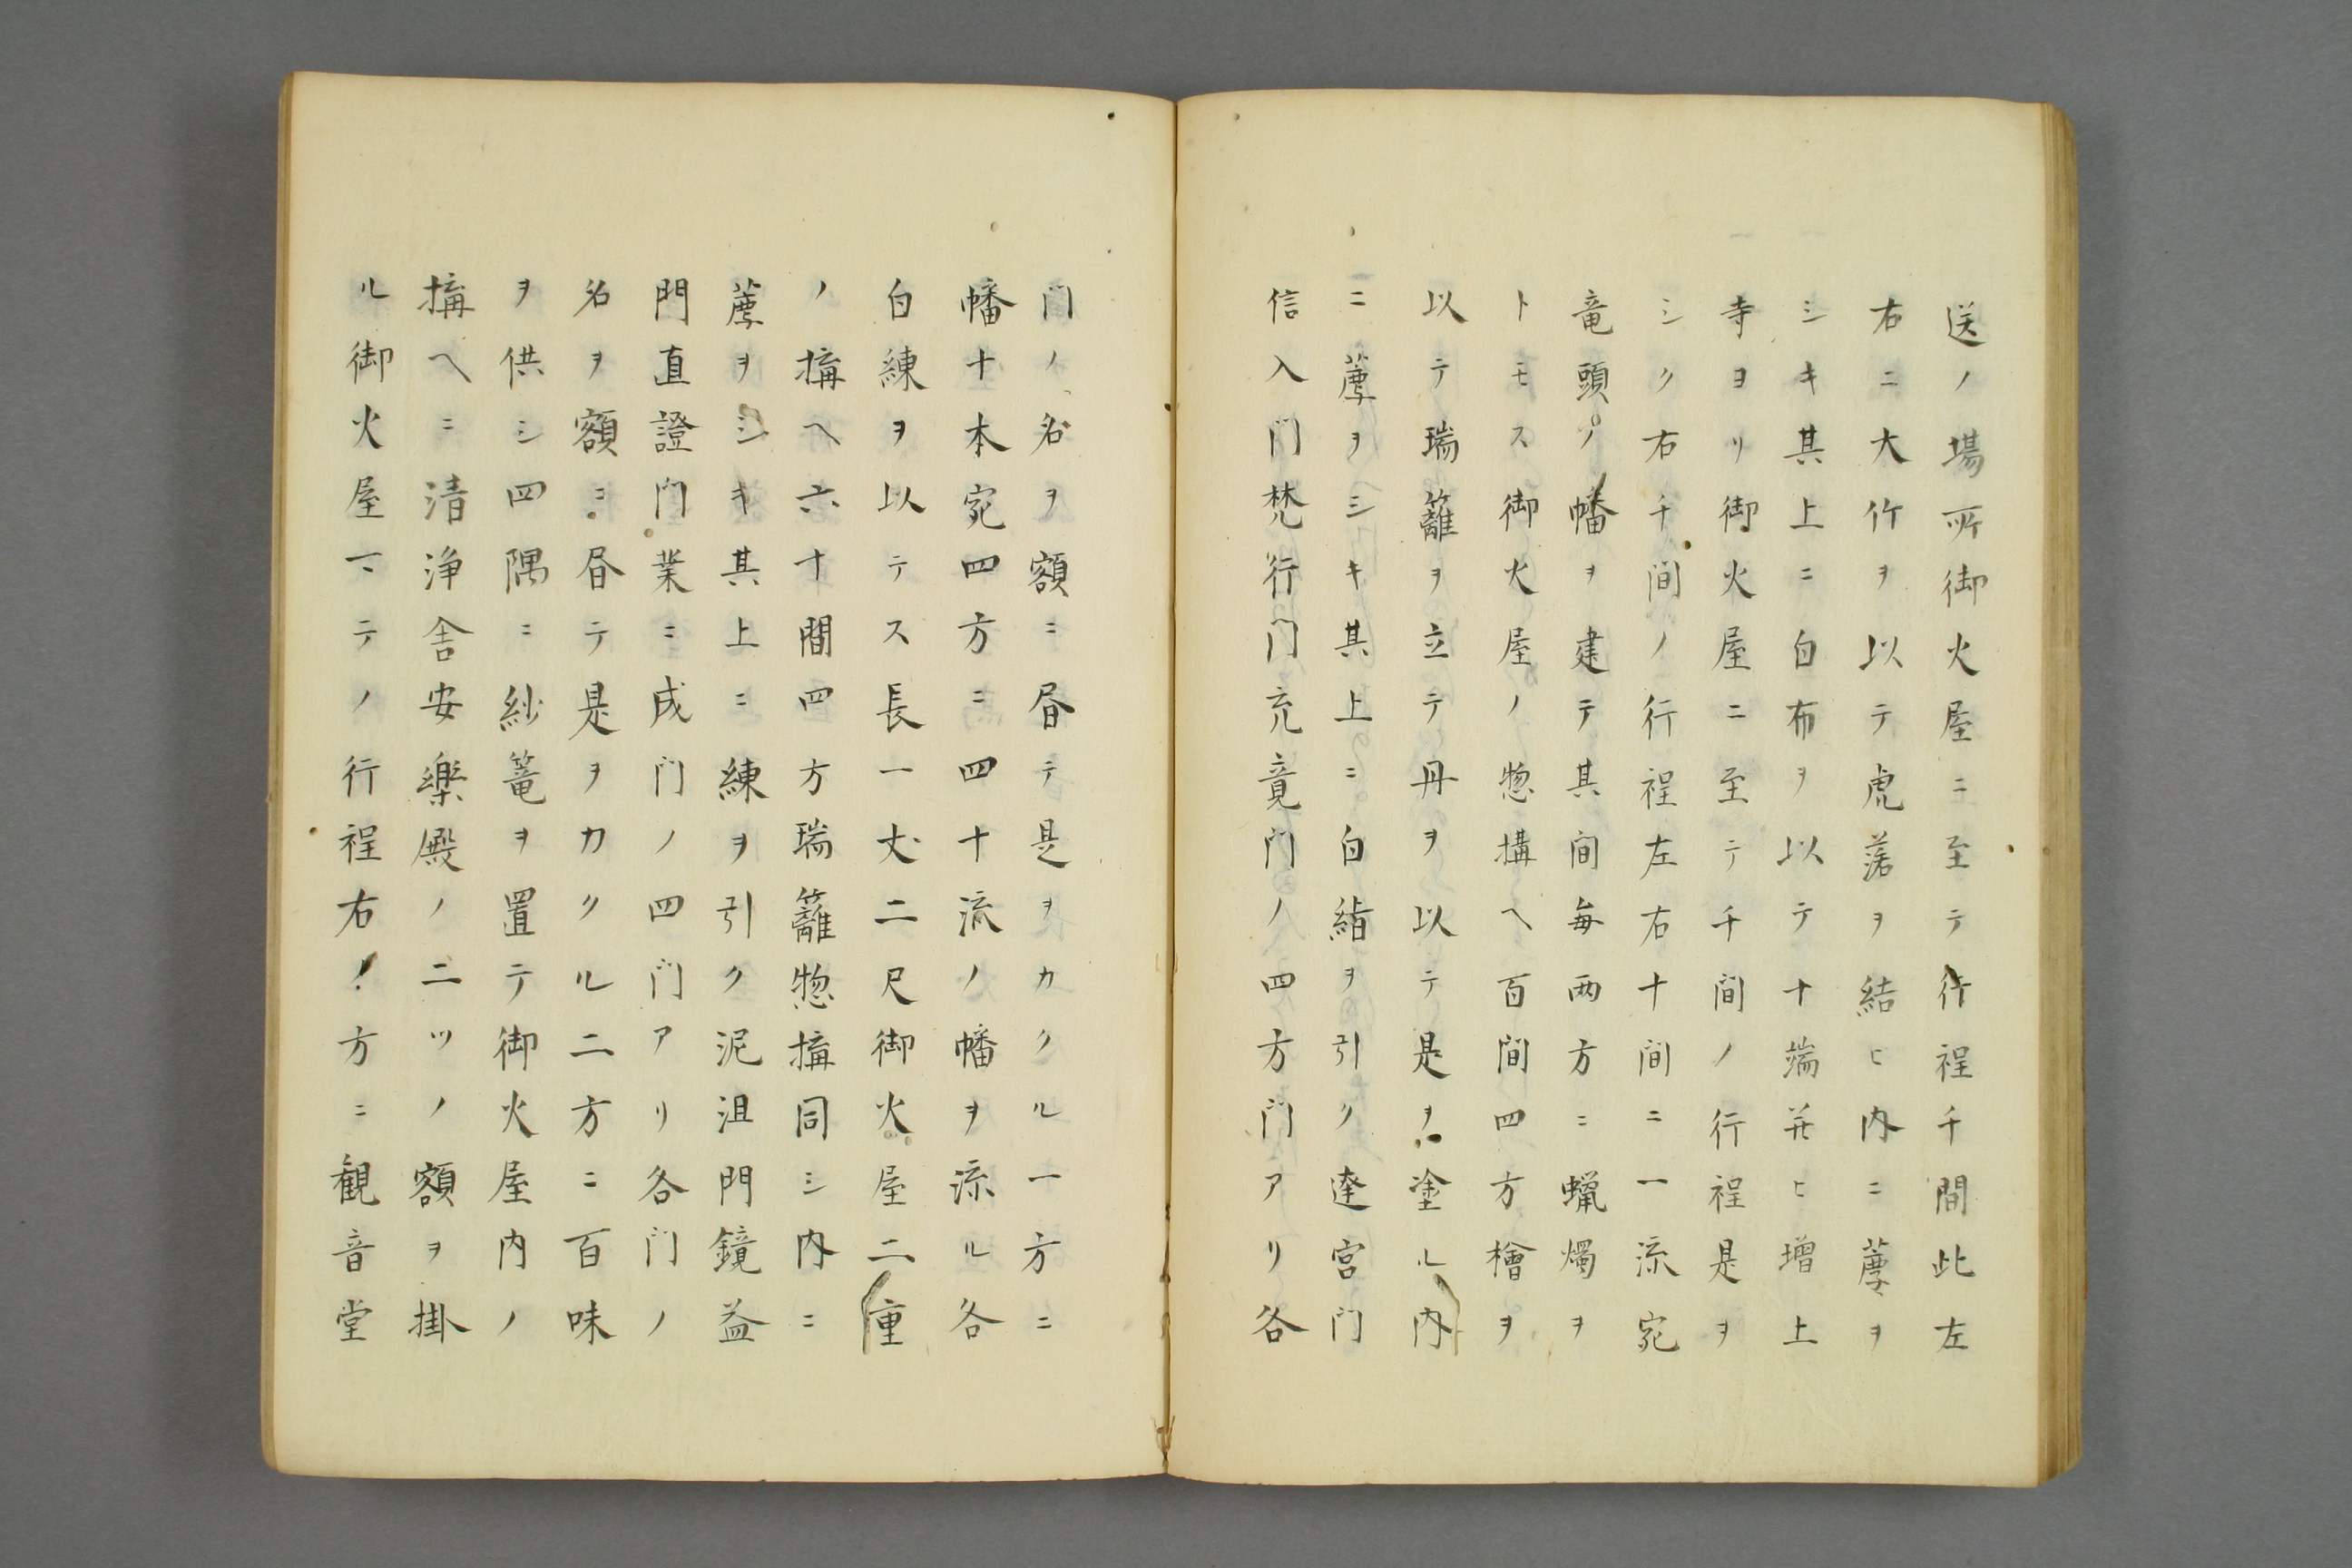 送ノ場所御火屋ニ至テ行程千間此左
右ニ大竹ヲ以テ虎落ヲ結ヒ内ニ薦ヲ
シキ其上ニ白布ヲ以テ十端并ヒ増上
寺ヨリ御火屋ニ至テ千間ノ行程是ヲ
シク右千間ノ行程左右十間ニ一流宛
竜頭ノ幡ヲ建テ其间毎両方ニ蝋燭ヲ
トモス御火屋ノ惣構ヘ百間四方檜ヲ
以テ瑞籬ヲ立テ丹ヲ以テ是ヲ塗ル内
ニ薦ヲシキ其上ニ白絹ヲ引ク達宮门
信入门梵行门充竟门ノ四方门アリ各
门ノ名ヲ額ニ昏テ是ヲカクル一方ニ
幡十本宛四方ニ四十流ノ幡ヲ流ル各
白練ヲ以テス長一丈二尺御火屋二重
ノ搆ヘ六十間四方瑞籬惣搆同シ内ニ
薦ヲシキ其上ニ練ヲ引ク泥沮門鏡益
門直證门業ニ成门ノ四门アリ各门ノ
名ヲ額ニ昏テ是ヲカクル二方ニ百味
ヲ供シ四隅ニ紗篭ヲ置テ御火屋内ノ
搆ヘニ清浄舎安樂殿ノ二ツノ額ヲ掛
ル御火屋マテノ行程右ノ方ニ観音堂